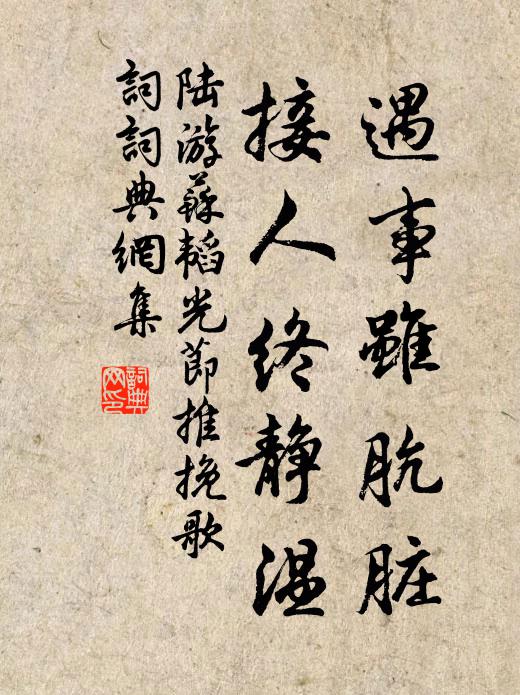 遇事雖肮脏
接人終靜温
陆游蘇韬光節推挽歌
詞詞典網集
詞典网印